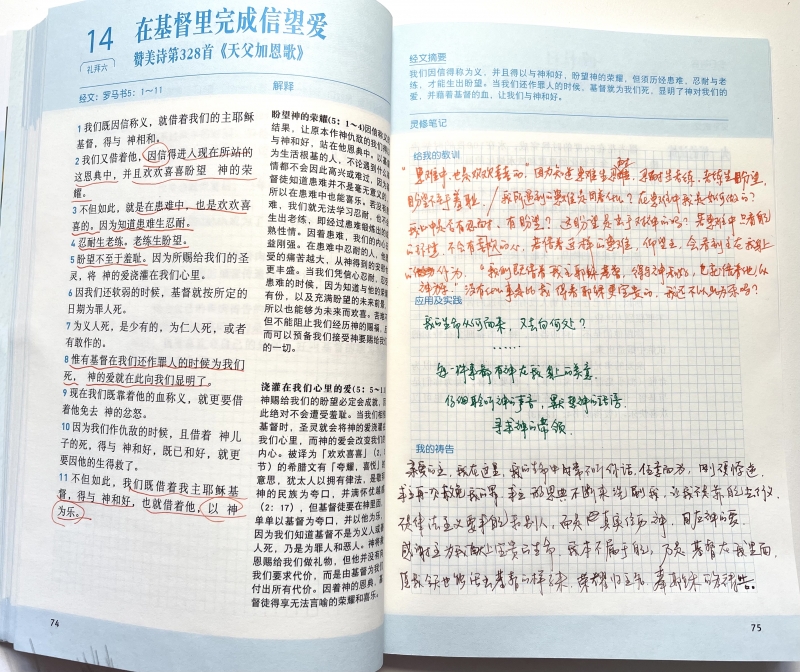 14
礼拜六
在基督里完成信望爱
赞美诗第328首《天父加恩歌》
经文：罗马书5：1～11
1 我们既因信称义，就借着我们的主耶稣
基督，得与 神相和。
2 我们又借着他，因信得进入现在所站的
这恩典中，并且欢欢喜喜盼望 神的荣
耀。
3 不但如此，就是在患难中，也是欢欢喜
喜的。因为知道患难生忍耐。
4 忍耐生老练。老练生盼望。
5 盼望不至于羞耻。因为所赐给我们的圣
灵，将 神的爱浇灌在我们心里。
6 因我们还软弱的时候，基督就按所定的
日期为罪人死。
7 为义人死，是少有的，为仁人死，或者
有敢作的。
8 惟有基督在我们还作罪人的时候为我们
死， 神的爱就在此向我们显明了。
9 现在我们既靠着他的血称义，就更要借
着他免去 神的忿怒。
10 因为我们作仇敌的时候，且借着 神儿
子的死，得与 神和好，既已和好，就更
要因他的生得救了。
11 不但如此，我们既借着我主耶稣基
督，得与 神和好，也就借着他，以 神
为乐。
解释
盼望神的荣耀(5：1～4)因信称义的
结果，让原本作神仇敌的我们得以
与神和好，站在他的恩典中。以基督
为生活根基的人，不论遇到什么
情都不会因此高兴或难过，因为
督徒知道患难并不是毫无意义的，
所以在患难中也能喜乐。若没有
难，我们就无法学习忍耐，也不
生出老练，即经过患难锻炼出的
熟性情。因着患难，我们的内心
益刚强。在患难中忍耐的人，他
受的痛苦越大，从神得到的安慰
更丰盛。当我们凭信心忍耐，忍
患难的时候，因为知道与他的荣
有份，以及充满盼望的未来前景，
所以也能够为未来而欢喜。苦难
但不能阻止我们经历神的赐福，
而可以预备我们接受神要赐给我们
的一切。
浇灌在我们心里的爱(5：5～11)
神赐给我们的盼望必定会成就，
此绝对不会遭受羞耻。当我们相
基督时，圣灵就会将神的爱浇灌
我们心里，而神的爱会改变我们的
内心。被译为「欢欢喜喜」(2，3
节）的希腊文有「夸耀，喜悦」的
意思，犹太人以拥有律法，是敬
神的民族为夸口，并满怀优越感
（2：17），但基督徒要在神里面，
单单以基督为夸口，并以他为乐，
因为我们知道基督不是为义人或善
人死，乃是为罪人和恶人。神将
恩赐给我们做礼物，但他并没有向
我们要求代价，而是由基督为我们
付出所有代价。因着神的恩典，基
督徒得享无法言喻的荣耀和喜乐。
74
经文摘要
我们因信得称为义，并且得以与神和好，盼望神的荣耀，但须历经患难、忍耐与老
练，才能生出盼望。当我们还作罪人的时候，基督就为我们死，显明了神对我们的
爱，并藉着基督的血，让我们与神和好。
灵修笔记
给我的教训
“患难中，也是欢欢喜喜的”因为知道患难生忍耐，忍耐生老练，老练生盼望，
盼望不至于羞耻。我所遇到的患难是因着什么？在患难中我是如何做的？
我心中是否有忍耐，有盼望？这盼望是出于对神的吗？若患难中只看自己
“我们既借着我主耶稣基督，得与神和好，也就借着他以
神为乐。”
应用及实践
我的生命从何而来，又去向何处？
……
每一件事都有神在我身上的美意，
仔细聆听神的声音，默想神的话语
寻求神的带领
我的祷告
亲爱的主，我在这里
感谢主为我献上宝贵的生命，我本不属于自己，乃是基督在我里面，
75